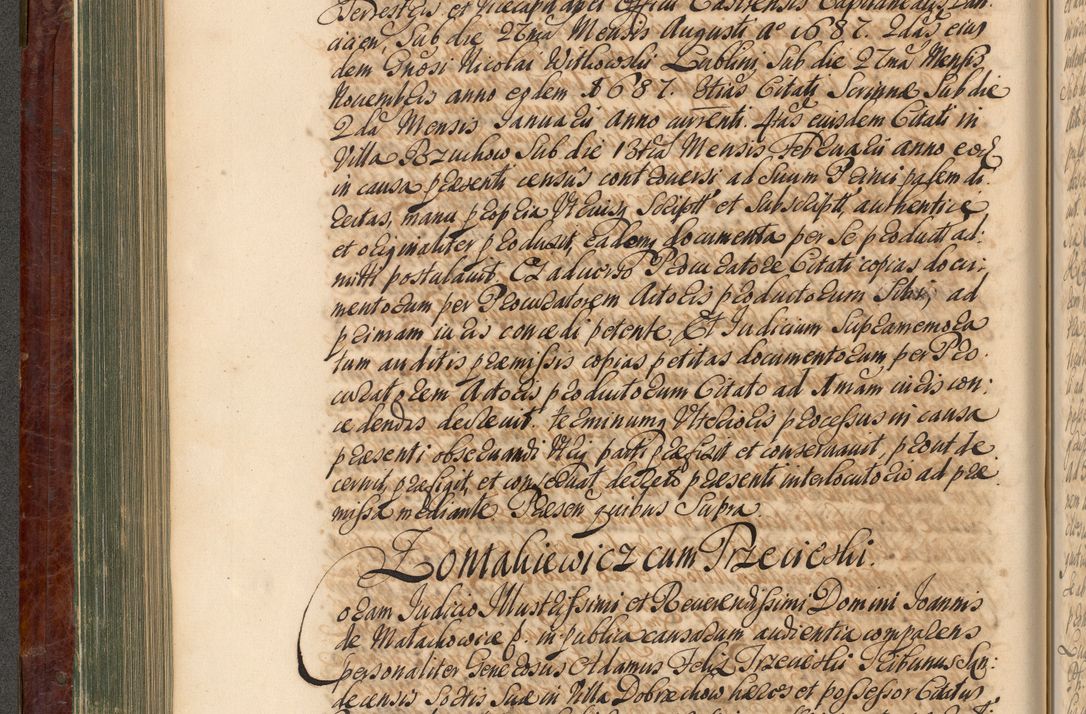 Terrestris et Vicecapitanei Officii Castrensis Capitanealis San
cicien, Sub die 26ma Mensis Augusti ao 1687. 2das eius
dem Gnosi Nicolai Witkowskii Lublini Sub die 27ma Mensis
Nouembris anno eodem 1687. 3tias Citati Scrinnæ Sub die
2da Mensis Januarii Anno currenti. 4tas eiusdem Citati in
Villa Bzuchow Sub die 13tia Mensis Februarii anno eoq
in causa præsenti census controuersi ad Suum Principalem di
rectas, manu propria Vtriusq Script et Subscript, authentice
et originaliter produxit, eademq documenta per se product ad
mitti postulauit. Ex aduerso Procuratore Citati copias docu
mentorum per Procuratorem Actoris productorum Sibi, ad
primam iuris concedi petente. Et Judicium Supramemora
tum auditis præmissis copias petitas documentorum per Pro
curatorem Actoris productorum Citato ad 1mam iuris con:
cedendas decreuit. terminumq Vlterioris processus in causa
præsenti obseruandi Vtriq parti præfixit et conseruauit, prout de
cernit, præfigit, et conseruat decreto præsenti interlocutorio ad præ
missa mediante. Præsen quibus Supra.
Zontakiewicz cum Trzecieski.
Coram Judicio Illustrissimi et Reuerendissimi Domini Joannis
de Małachowice p. in publica causarum audientia comparens
personaliter Generosus Adamus Felix Trzecieski Tribunus San:
decensis Sortis Suæ in Villa Dobrzechow hæres et possessor Citatus